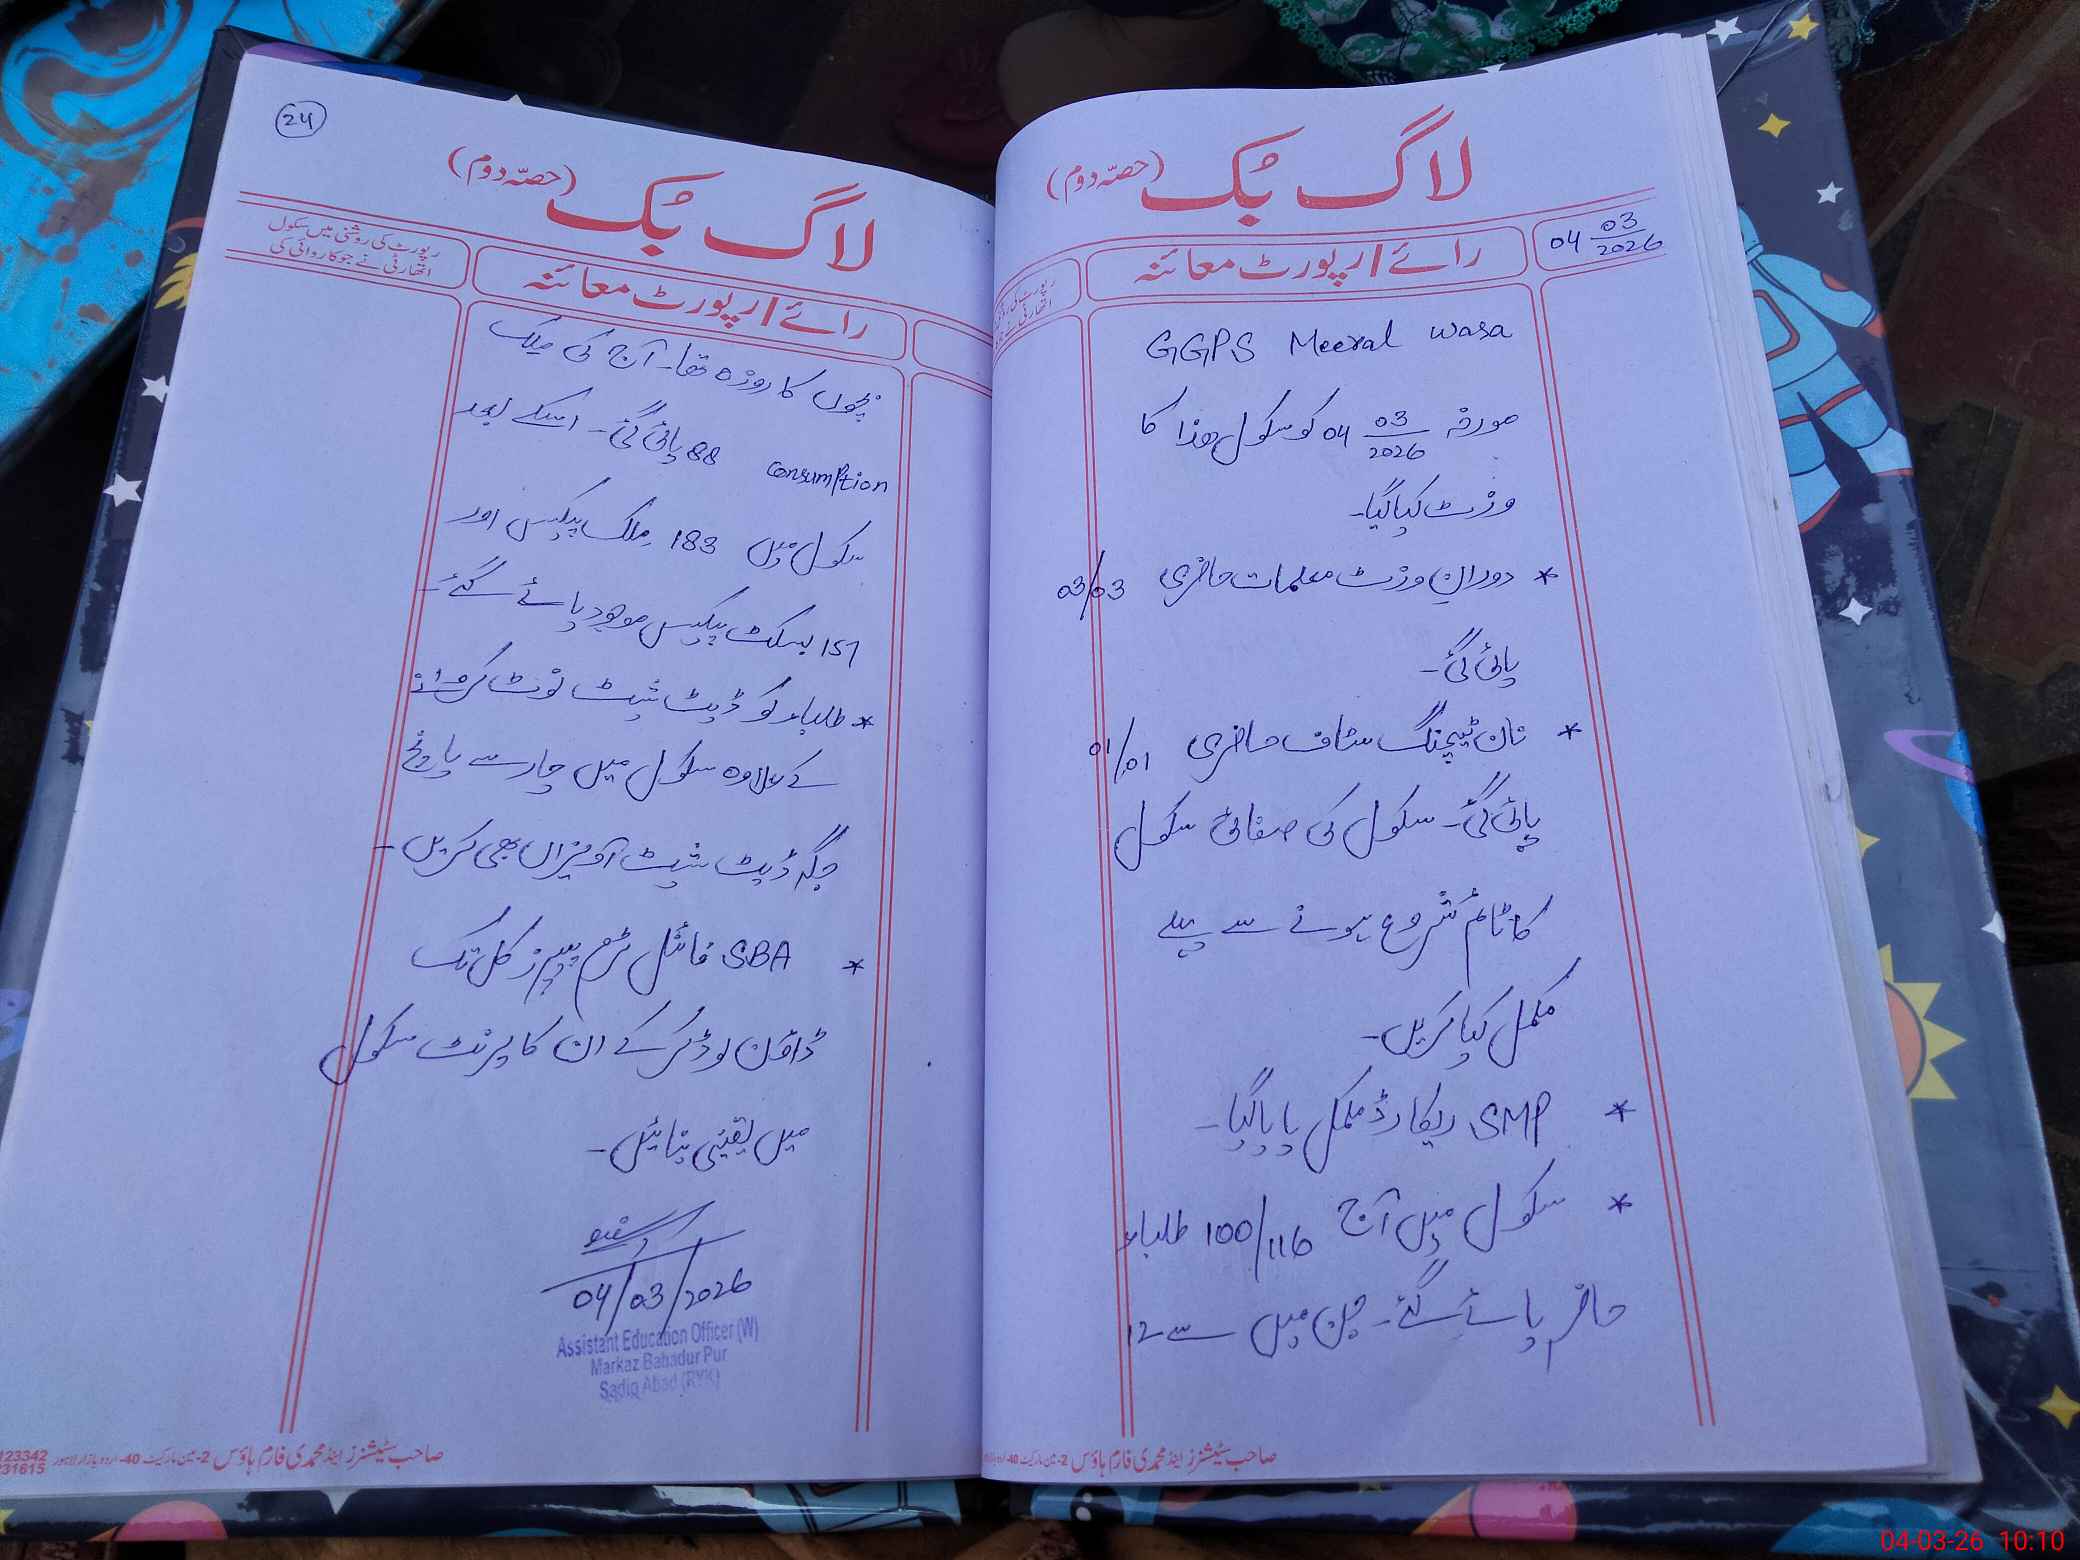 لاگ بُک (حصّہ دوم)
رائے/رپورٹ معائنہ
04 03/2026
رپورٹ کی
اتھارٹی نے
GGPS Meeral wasa
مورخہ 04 03/2026 کو سکول ھذا کا
وزٹ کیا گیا۔
* دورانِ وزٹ معلمات حاضری 03/03
پائی گئی۔
* نان ٹیچنگ سٹاف حاضری 01/01
پائی گئی۔ سکول کی صفائی سکول
کا ٹائم شروع ہونے سے پہلے
مکمل کیا کریں۔
* SMP ریکارڈ مکمل پایا گیا۔
* سکول میں آج 100/116 طلباء
حاضر پائے گئے۔ جن میں سے 12
صاحب سٹیشنرز اینڈ محمدی فارم ہاؤس 2-مین مارکیٹ 40-
24
لاگ بُک (حصّہ دوم)
رپورٹ کی روشنی میں سکول
اتھارٹی نے جو کاروائی کی
رائے/رپورٹ معائنہ
بچوں کا روزہ تھا۔ آج کی ملک
consumption 88 پائی گئی۔ اسکے بعد
سکول میں 183 ملک پیکیس اور
157 بسکٹ پیکیس موجود پائے گئے۔
* طلباء کو ڈیٹ شیٹ نوٹ کروانے
کے علاوہ سکول میں چار سے پانچ
جگہ ڈیٹ شیٹ آویزاں بھی کریں۔
* SBA فائنل ٹرم پیپرز کل تک
ڈاؤن لوڈ کر کے ان کا پرنٹ سکول
میں یقینی بنائیں۔
04/03/2026
Assistant Education Officer (W)
Markaz Bahadur Pur
Sadiq Abad (RYK)
صاحب سٹیشنرز اینڈ محمدی فارم ہاؤس 2-مین مارکیٹ 40-اردو بازار لاہور
123342
231615
04-03-26 10:10